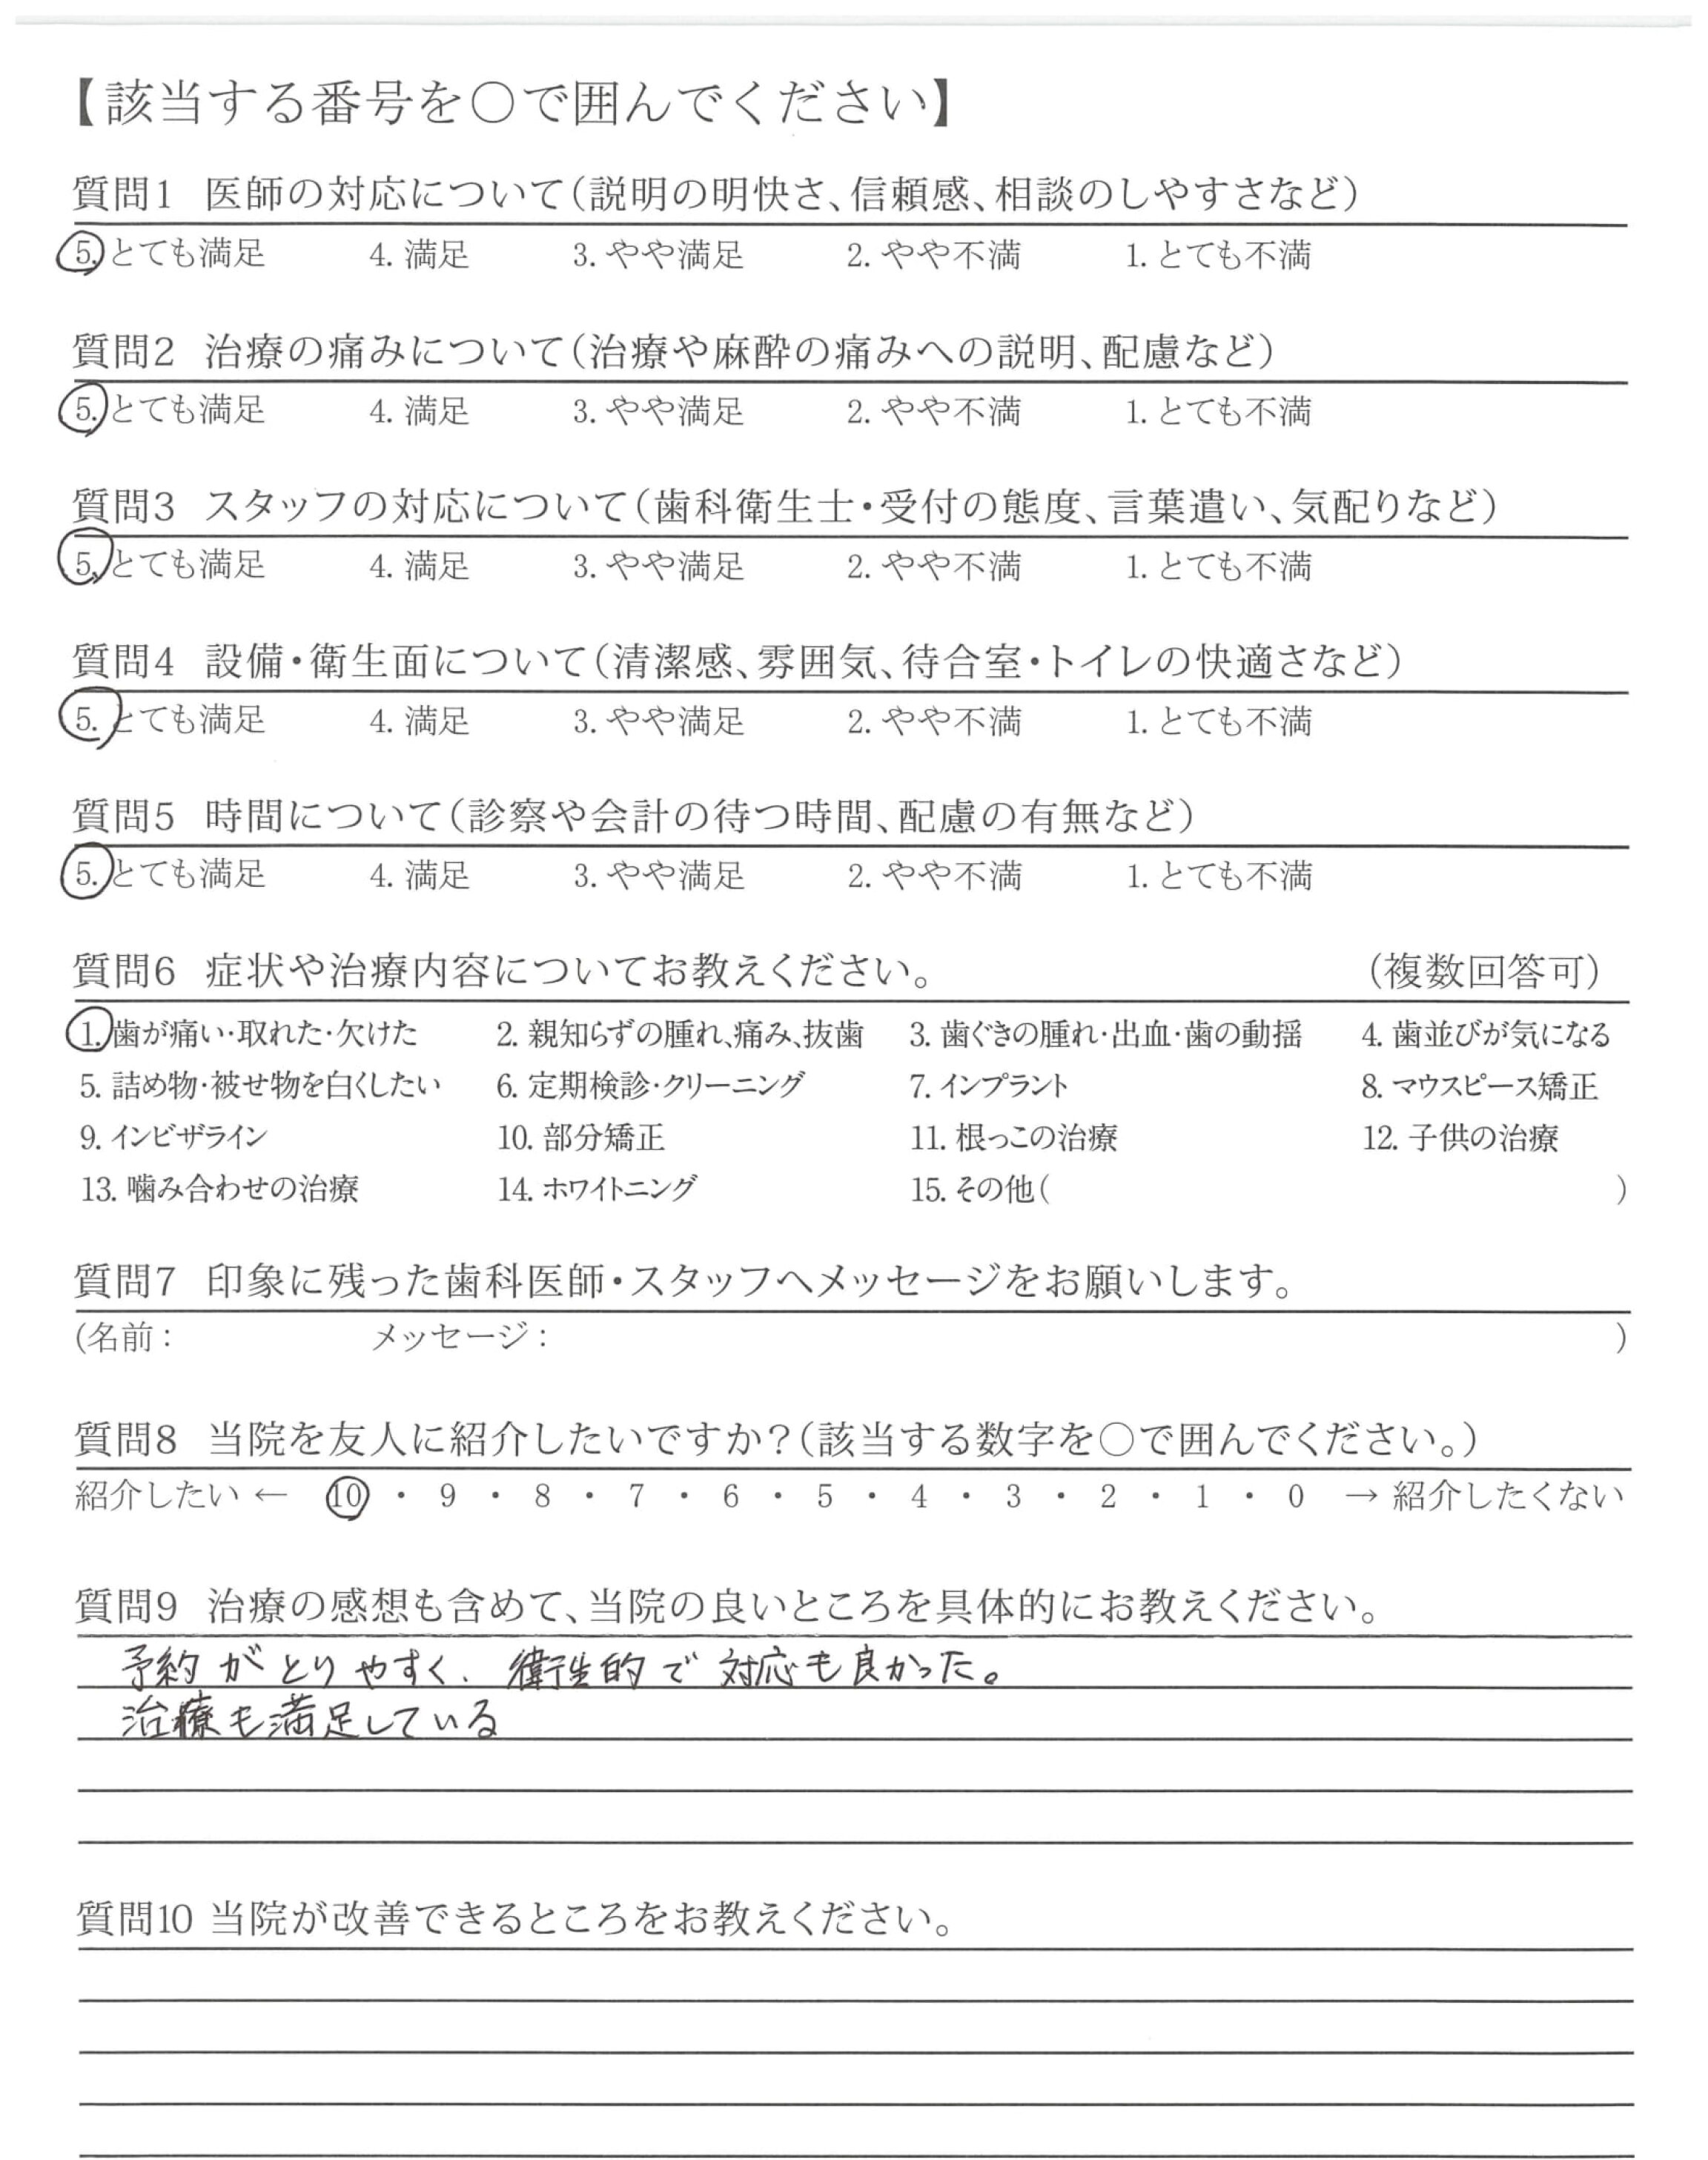 【該当する番号を○で囲んでください】
質問1 医師の対応について(説明の明快さ、信頼感、相談のしやすさなど)
5. とても満足 4. 満足 3. やや満足 2. やや不満 1. とても不満
質問2 治療の痛みについて(治療や麻酔の痛みへの説明、配慮など)
5. とても満足 4. 満足 3. やや満足 2. やや不満 1. とても不満
質問3 スタッフの対応について(歯科衛生士・受付の態度、言葉遣い、気配りなど)
5. とても満足 4. 満足 3. やや満足 2. やや不満 1. とても不満
質問4 設備・衛生面について(清潔感、雰囲気、待合室・トイレの快適さなど)
5. とても満足 4. 満足 3. やや満足 2. やや不満 1. とても不満
質問5 時間について(診察や会計の待つ時間、配慮の有無など)
5. とても満足 4. 満足 3. やや満足 2. やや不満 1. とても不満
質問6 症状や治療内容についてお教えください。 (複数回答可)
1. 歯が痛い・取れた・欠けた 2. 親知らずの腫れ、痛み、抜歯 3. 歯ぐきの腫れ・出血・歯の動揺 4. 歯並びが気になる
5. 詰め物・被せ物を白くしたい 6. 定期検診・クリーニング 7. インプラント 8. マウスピース矯正
9. インビザライン 10. 部分矯正 11. 根っこの治療 12. 子供の治療
13. 噛み合わせの治療 14. ホワイトニング 15. その他( )
質問7 印象に残った歯科医師・スタッフへメッセージをお願いします。
(名前: メッセージ: )
質問8 当院を友人に紹介したいですか?(該当する数字を○で囲んでください。)
紹介したい ← 10 ・ 9 ・ 8 ・ 7 ・ 6 ・ 5 ・ 4 ・ 3 ・ 2 ・ 1 ・ 0 → 紹介したくない
質問9 治療の感想も含めて、当院の良いところを具体的にお教えください。
予約がとりやすく、衛生的で対応も良かった。
治療も満足している
質問10 当院が改善できるところをお教えください。